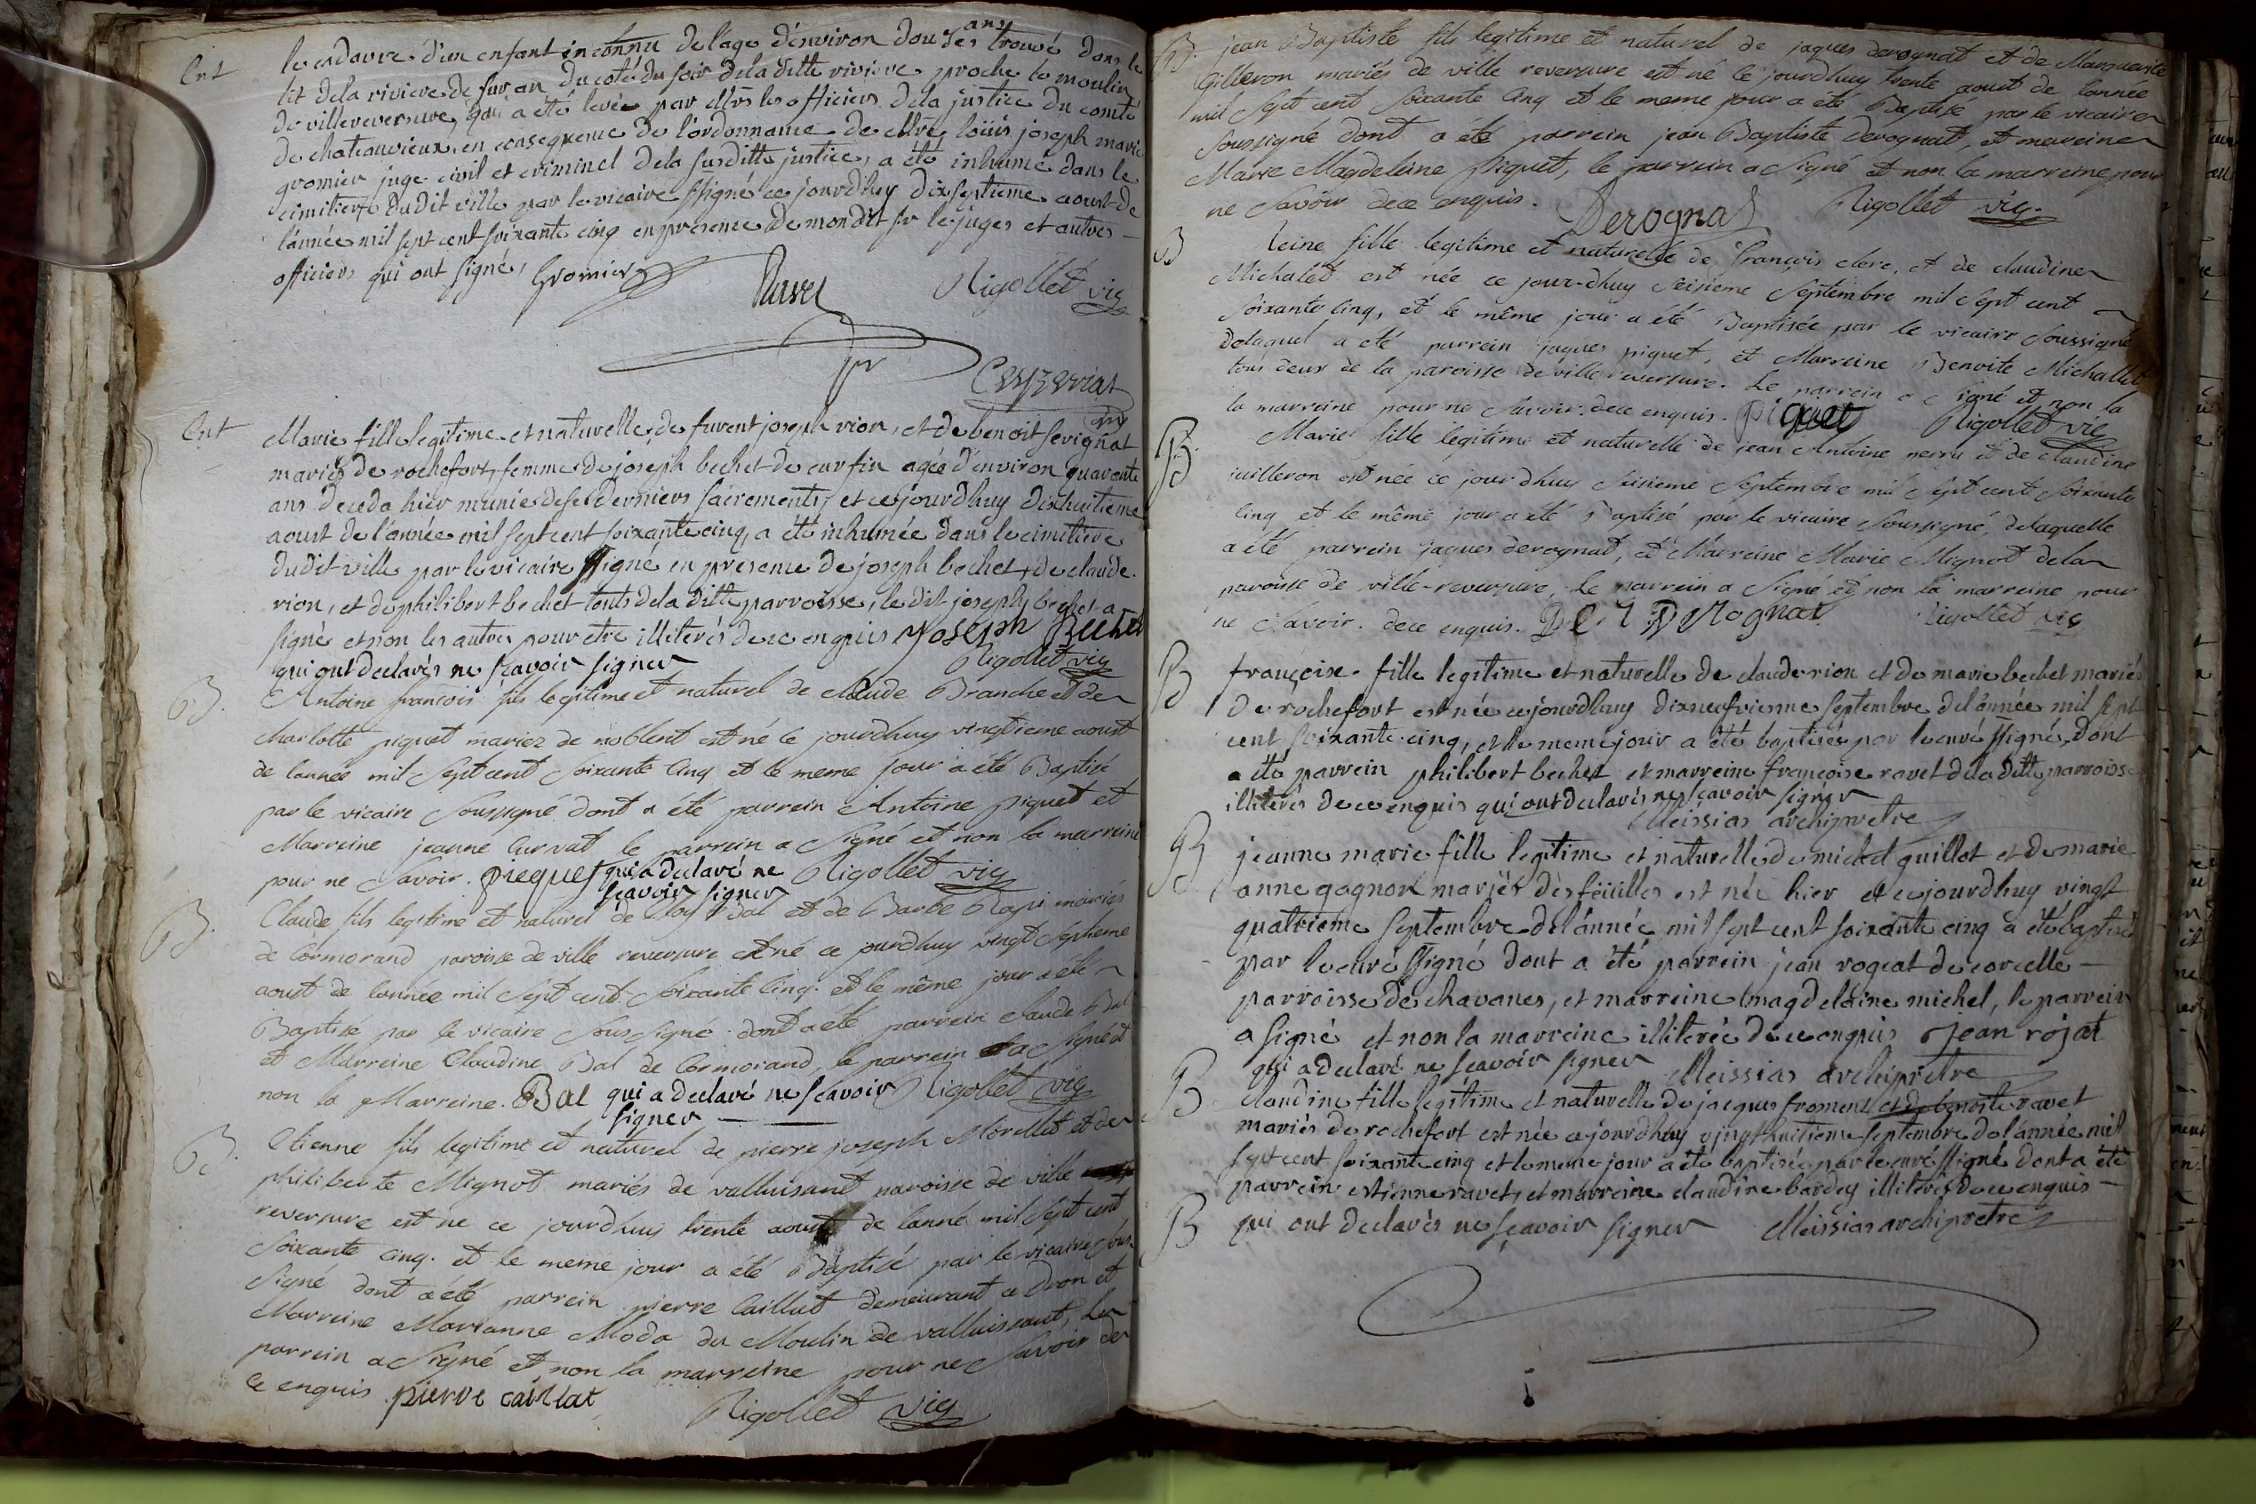 Ent
le cadavre d'un enfant inconnu de lage d'environ douzes ans trouvé dans le
lit de la riviere de suran du coté du soir de la ditte riviere proche le moulin
de villereversure, qui a été levé par mrs les officiers de la justice du comté
de chateauvieux en consequence de l'ordonnance de mre loüis joseph marie
gromier juge civil et criminel de la susditte justice, a été inhumé dans le
cimitiere dudit ville par le vicaire ssigné ce jourdhuy dixseptieme aoust de
l'année mil sept cent soixante cinq en presence de mondit sr le juges et autres
officiers qui ont signé, Gromier Ravet Rigollet vic
Ent
Marie fille legitime et naturelle de fuvent joseph vion, et de benoit sevignat
mariés de rochefort, femme de joseph bechet de curfin agée d'environ quarante
ans deceda hier munie de ses derniers sacrements, et ce jourdhuy dixhuitieme
aoust de l'année mil sept cent soixante cinq, a été inhumée dans le cimitiere
dudit ville par le vicaire ssigné en presence de joseph bechet, de claude
vion, et de philibert bechet touts de la ditte parroisse, le dit joseph bechet a
signé et non les autres pour etre illiterés de ce enquis joseph Bechet
qui ont declarés ne sçavoir signer Rigollet vic
B.
Antoine françois fils legitime et naturel de Claude Branche et de
charlotte piquet mariez de noblent est né ce jourdhuy vingtieme aoust
de lannée mil Sept cent Soixante Cinq et le meme jour a été Baptisé
par le vicaire Soussigné dont a été parrein Antoine piquet et
Marreine jeanne Curvat le parrein a Signé et non la marreine
pour ne Savoir. pieques qui a declaré ne Rigollet vic
sçavoir signer
B.
Claude fils legitime et naturel de Bal et de Barbe mariés
de Cormorand paroisse de ville reversure est né ce jourdhuy vingt Septieme
aoust de lannée mil Sept cent Soixante Cinq. et le même jour a été
Baptisé par le vicaire Sous Signé dont a été parrein Claude Bal
et Marreine Claudine Bal de Cormorand, le parrein a Signé et
non la Marreine. Bal qui a declaré ne sçavoir Rigollet vic
signer
B.
Etienne fils legitime et naturel de pierre joseph Morellet et de
philiberte Mignot mariés de valluisant paroisse de ville
reversure est ne ce jourdhuy trente aoust de lanné mil Sept cent
Soixante Cinq. et le meme jour a été Baptisé par le vicaire Sous-
Signé dont a été parrein pierre Caillat demeurant a Dron et
Marreine Marianne Moda du Moulin de valluisant, Le
parrein a Signé et non la marreine pour ne Savoir de
Ce enquis pierre caillat
Rigollet vic
B.
jean Baptiste fils legitime et naturel de jaques derognat et de Marguerite
Gilleron mariés de ville reversure est né ce jourdhuy trente aoust de lannée
mil Sept cent Soixante Cinq et le meme jour a été Baptisé par le vicaire
Soussigné dont a été parrein jean Baptiste derognat, et marreine
Marie Magdeleine Piquet, le parrein a Signé et non la marreine pour
ne Savoir de ce enquis. Derognat Rigollet vic.
B
Reine fille legitime et naturelle de François clerc, et de claudine
Michalet est née ce jour-dhuy Seisieme Septembre mil Sept cent
Soixante Cinq, et le même jour a été Baptisée par le vicaire Soussigné
de laquel a été parrein jaques piquet, et Marreine Benoite Michallet
tous deux de la paroisse de ville reversure. Le parrein a Signé et non la
la marreine pour ne Savoir. de ce enquis. piquet Rigollet vic
B
Marie fille legitime et naturelle de jean Antoine et de Claudine
est née ce jourdhuy Seisieme Septembre mil Sept cent Soixante
Cinq et le même jour a été Baptisé par le vicaire Soussigné, de laquelle
a été parrein jaques derognat, et Marreine Marie Mignot de la
paroisse de ville-reversure, Le parrein a Signé et non la marreine pour
ne Savoir. de ce enquis. Derognat Rigollet vic
B
françoise fille legitime et naturelle de claude vion et de marie bechet mariés
de rochefort est née ce jourdhuy dixneufvieme septembre de l'année mil sept
cent soixante cinq, et le meme jour a été baptisée par le curé ssigné, dont
a été parrein philibert bechet et marreine françoise ravet de la ditte parroisse
illiterés de ce enquis qui ont declarés ne sçavoir signer
Meissias archipretre
B
jeanne marie fille legitime et naturelle de michel guillot et de marie
anne gagnon mariés des feüilles est née hier et ce jourdhuy vingt
quatrieme septembre de l'année mil sept cent soixante cinq a été baptisée
par le curé ssigné dont a été parrein jean rogeat de corcelle
parroisse de chavanes, et marreine magdelaine michel, le parrein
a signé et non la marreine illiterée de ce enquis jean rojat
qui a declaré ne sçavoir signer Meissias archipretre
B
Claudine fille legitime et naturelle de jacques froment et de benoite ravet
mariés de rochefort est née ce jourdhuy vingthuitieme septembre de l'année mil
sept cent soixante cinq et le meme jour a été baptisée par le curé ssigné dont a été
parrein estienne ravet, et marreine claudine bardey illiterés de ce enquis
B
qui ont declarés ne sçavoir signer Meissias archipretre